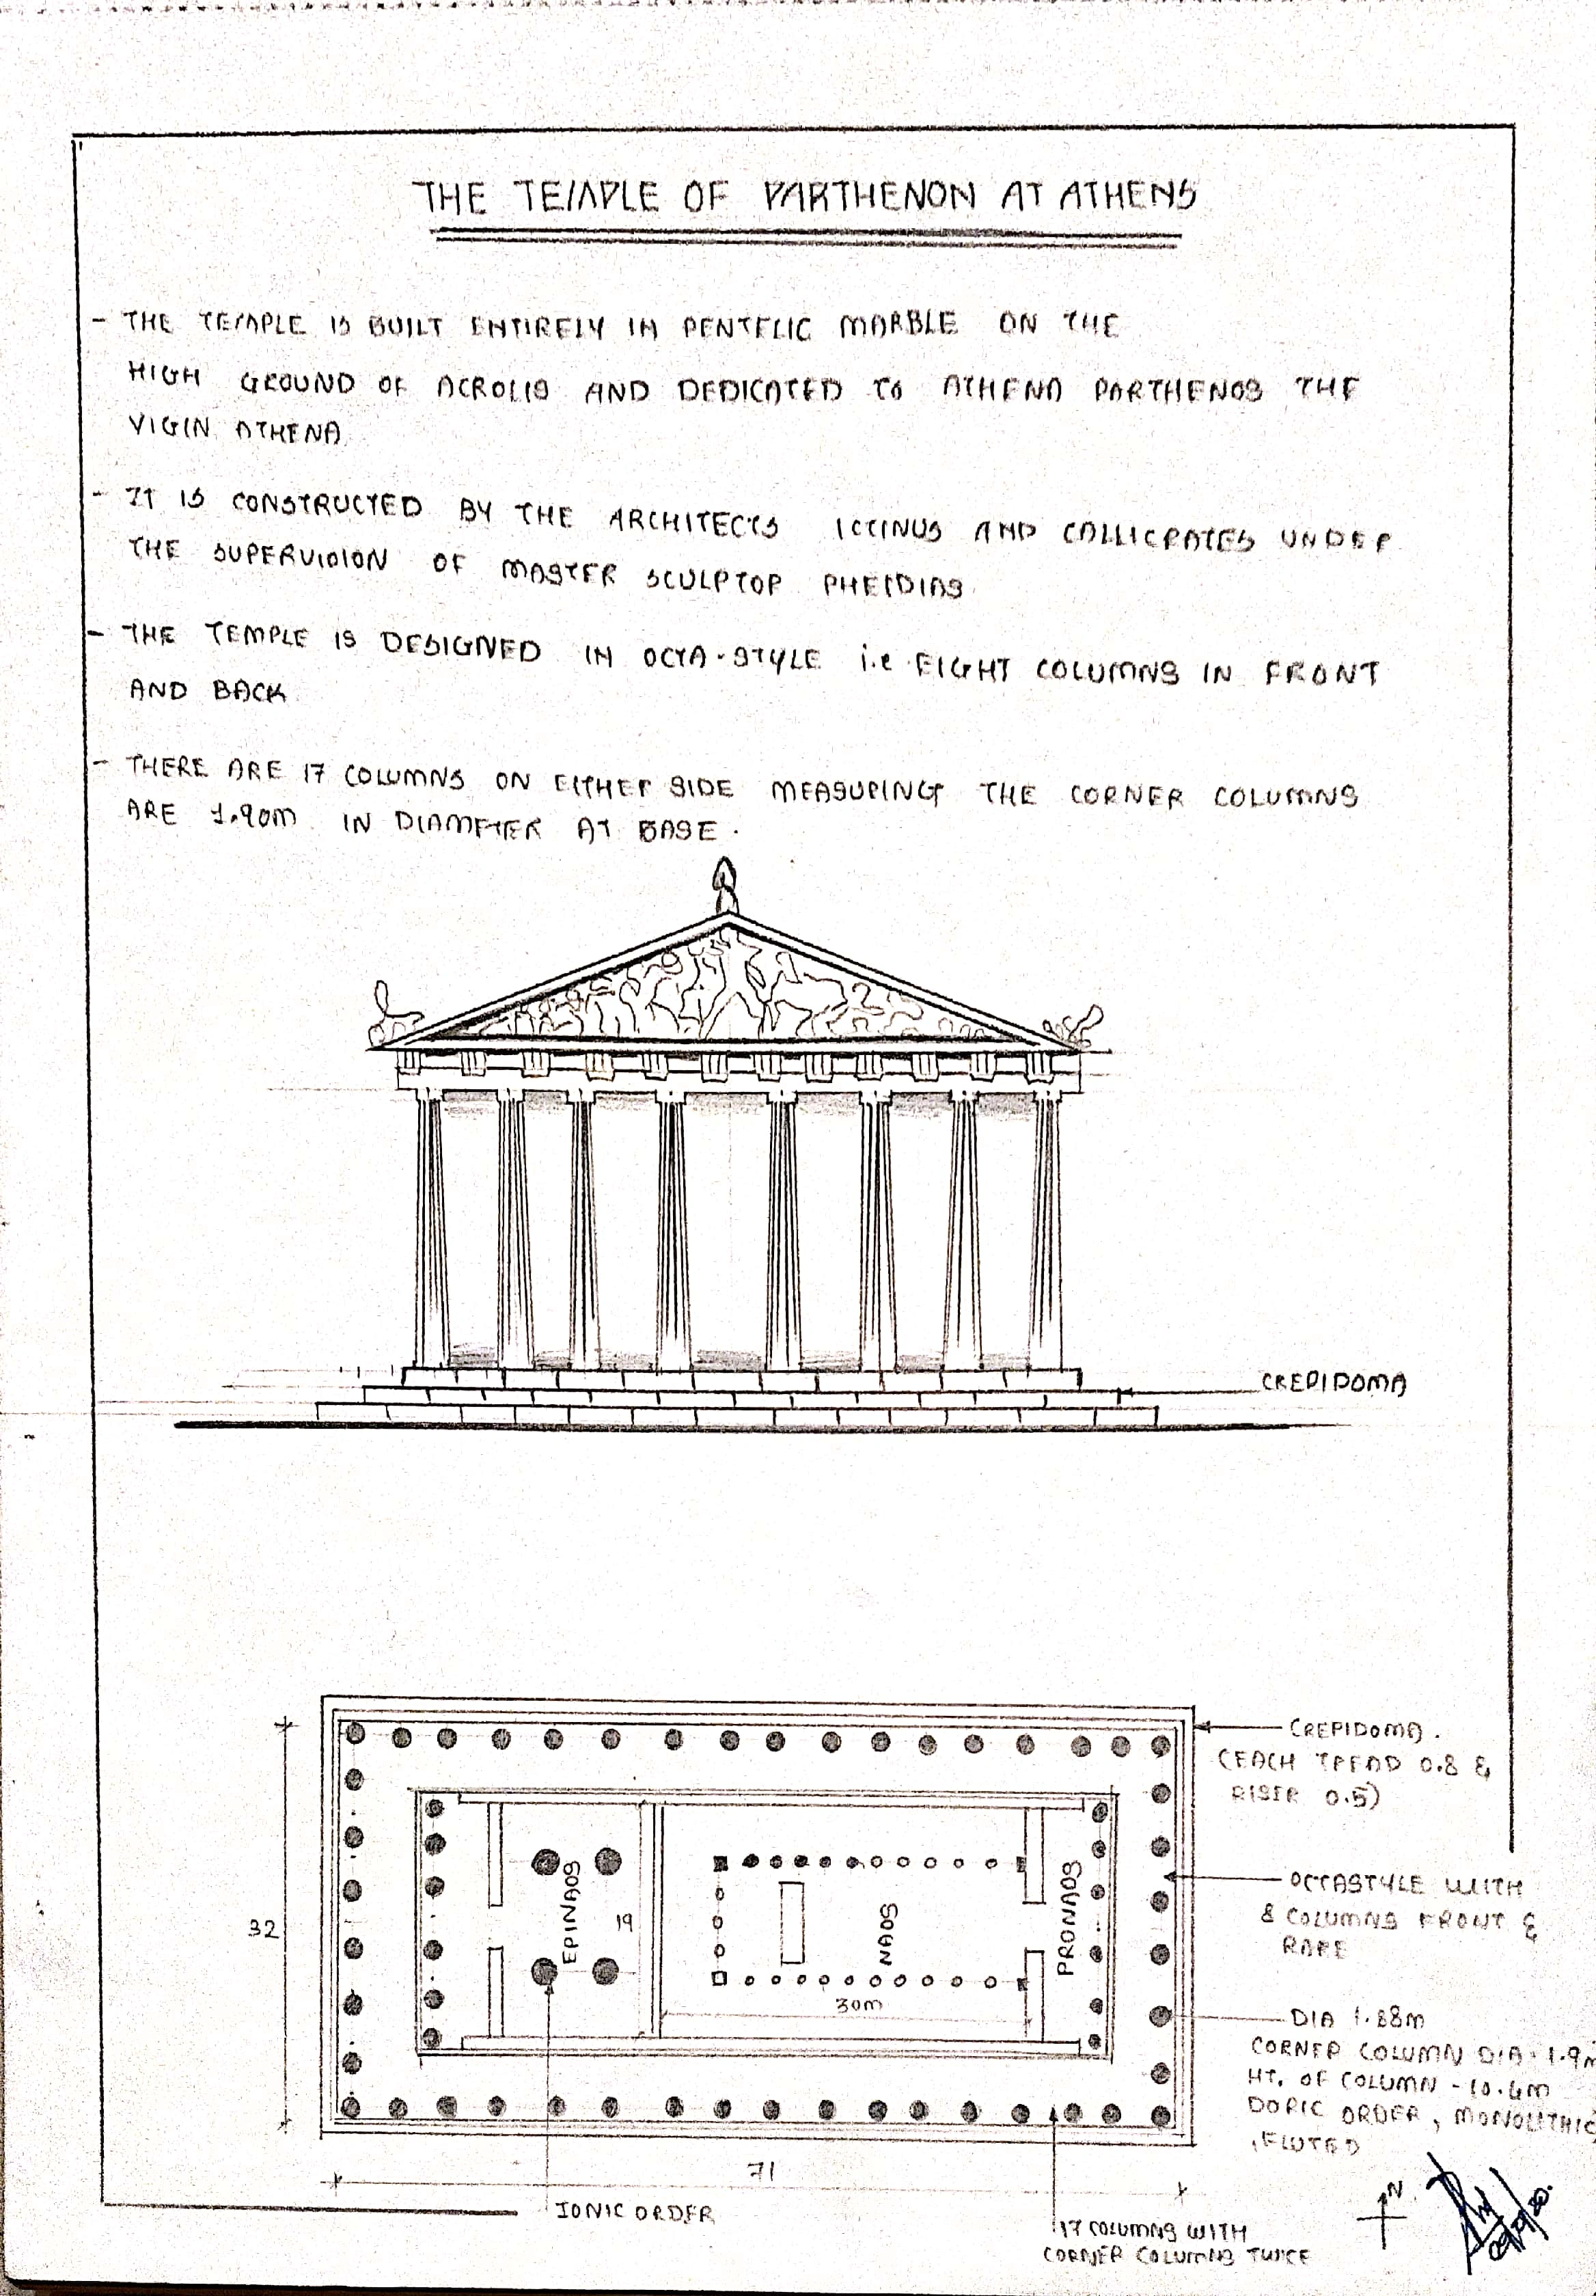 THE TEMPLE OF PARTHENON AT ATHENS
- THE TEMPLE IS BUILT ENTIRELY IN PENTELIC MARBLE ON THE
HIGH GROUND OF ACROLIS AND DEDICATED TO ATHENA PARTHENOS THE
VIGIN ATHENA
- IT IS CONSTRUCTED BY THE ARCHITECTS ICTINUS AND CALLICRATES UNDER
THE SUPERVISION OF MASTER SCULPTOR PHEIDIAS
- THE TEMPLE IS DESIGNED IN OCTA-STYLE i.e EIGHT COLUMNS IN FRONT
AND BACK
- THERE ARE 17 COLUMNS ON EITHER SIDE MEASURING THE CORNER COLUMNS
ARE 1.90m IN DIAMETER AT BASE.
CREPIDOMA
CREPIDOMA.
(EACH TREAD 0.8 &
RISER 0.5)
OCTASTYLE WITH
8 COLUMNS FRONT &
RARE
32
EPINAOS
19
NAOS
PRONAOS
30m
DIA 1.88m
CORNER COLUMN DIA-1.9m
HT. OF COLUMN - 10.4m
DORIC ORDER, MONOLITHIC
,FLUTED
71
IONIC ORDER
17 COLUMNS WITH
CORNER COLUMNS TWICE
N